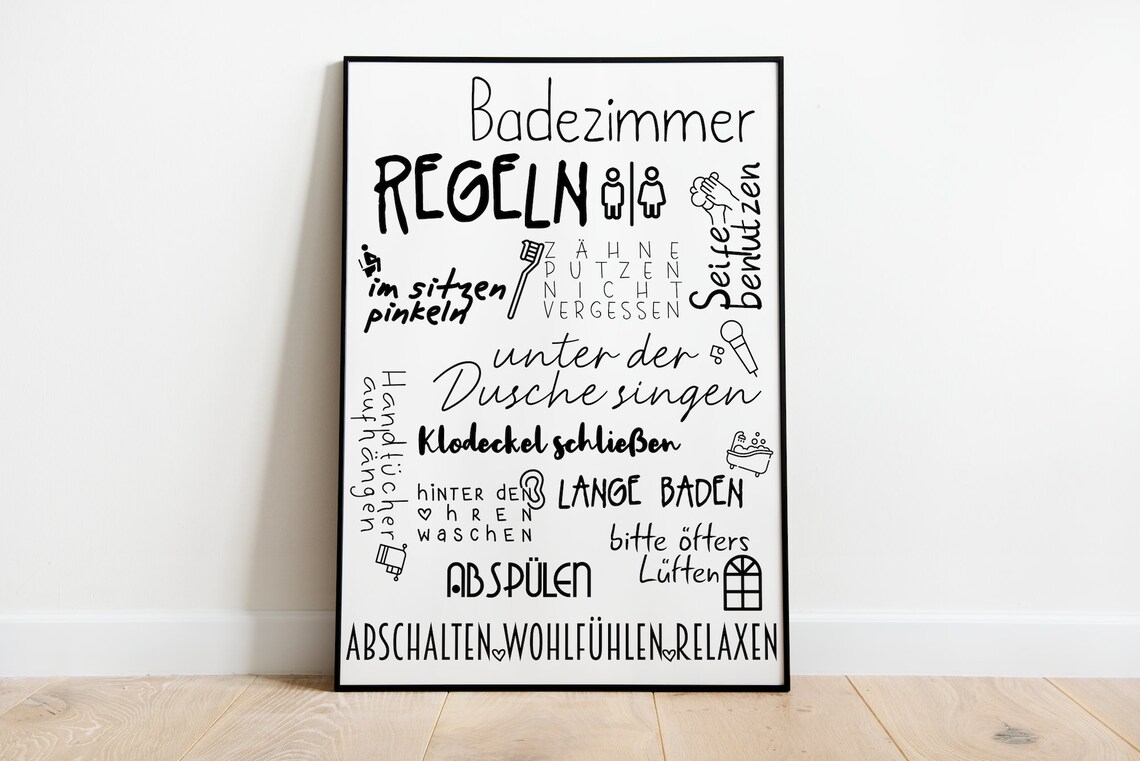 Badezimmer
REGELN
Seife
benlutzen
im sitzen
pinkeln
ZÄHNE
PUTZEN
NICHT
VERGESSEN
unter der
Dusche singen
Handtücher
aufhängen
Klodeckel schließen
hinter den
OHREN
waschen
LANGE BADEN
bitte öfters
Lüften
ABSPÜLEN
ABSCHALTEN♡WOHLFÜHLEN♡RELAXEN